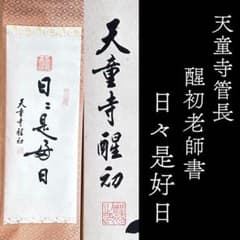 天童寺管長
醒初老師書
日々是好日
天童寺醒初
日々是好日
天童寺醒初